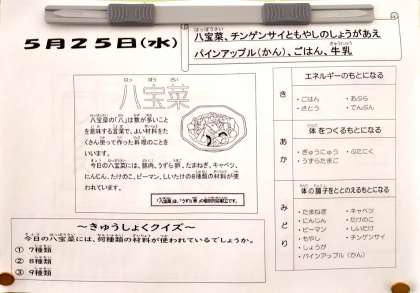 5月25日(水)
八宝菜、チンゲンサイともやしのしょうがあえ
パインアップル(かん)、ごはん、牛乳
八宝菜
八宝菜の「八」は数が多いこと
を意味する言葉で、よい材料をた
くさん使って作った料理のことを
いいます。
今日の八宝菜には、豚肉、うずら卵、たまねぎ、キャベツ、
にんじん、たけのこ、ピーマン、しいたけの8種類の材料が使
われています。
「八宝菜」は、「うずら卵」の個別対応献立です。
~きゅうしょくクイズ~
今日の八宝菜には、何種類の材料が使われているでしょうか。
① 7種類
② 8種類
③ 9種類
き
エネルギーのもとになる
・ごはん ・あぶら
・さとう ・でんぷん
あか
体をつくるもとになる
・ぎゅうにゅう ・ぶたにく
・うずらたまご
みどり
体の調子をととのえるもとになる
・たまねぎ ・キャベツ
・にんじん ・たけのこ
・ピーマン ・しいたけ
・もやし ・チンゲンサイ
・しょうが
・パインアップル(かん)